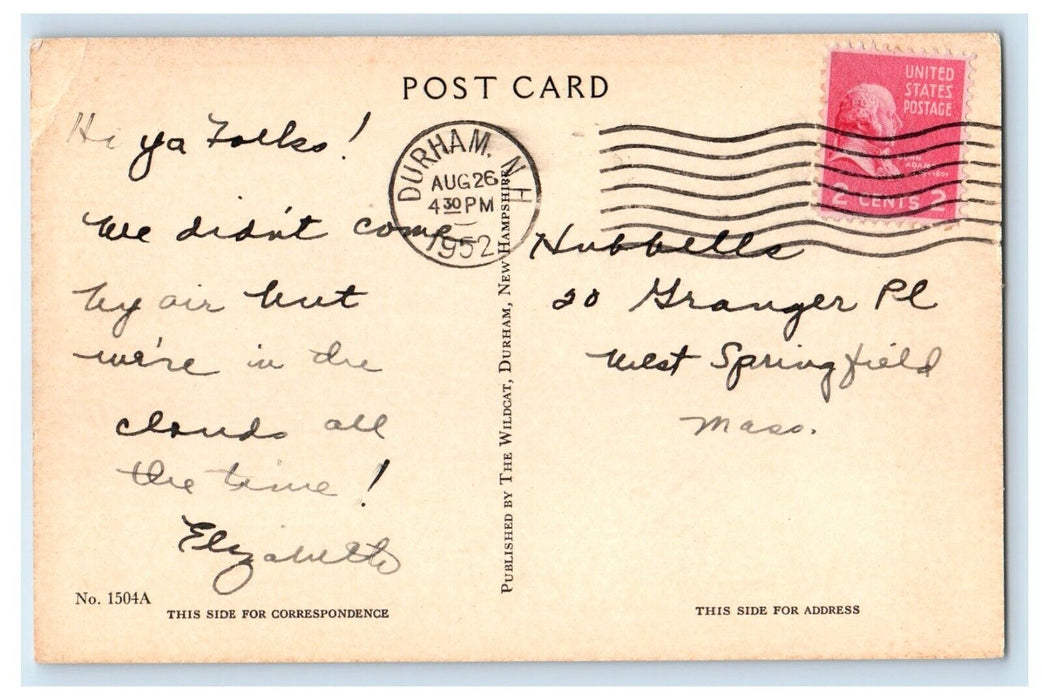 POST CARD
UNITED
STATES
POSTAGE
JOHN
ADAMS
2 CENTS 2
DURHAM, N.H.
AUG 26
4 30 PM
1952
Hi ya Folks!
We didn't come
by air but
we're in the
clouds all
the time!
Elizabeth
Hubbells
20 Granger Pl
West Springfield
Mass.
PUBLISHED BY THE WILDCAT, DURHAM, NEW HAMPSHIRE
No. 1504A
THIS SIDE FOR CORRESPONDENCE
THIS SIDE FOR ADDRESS